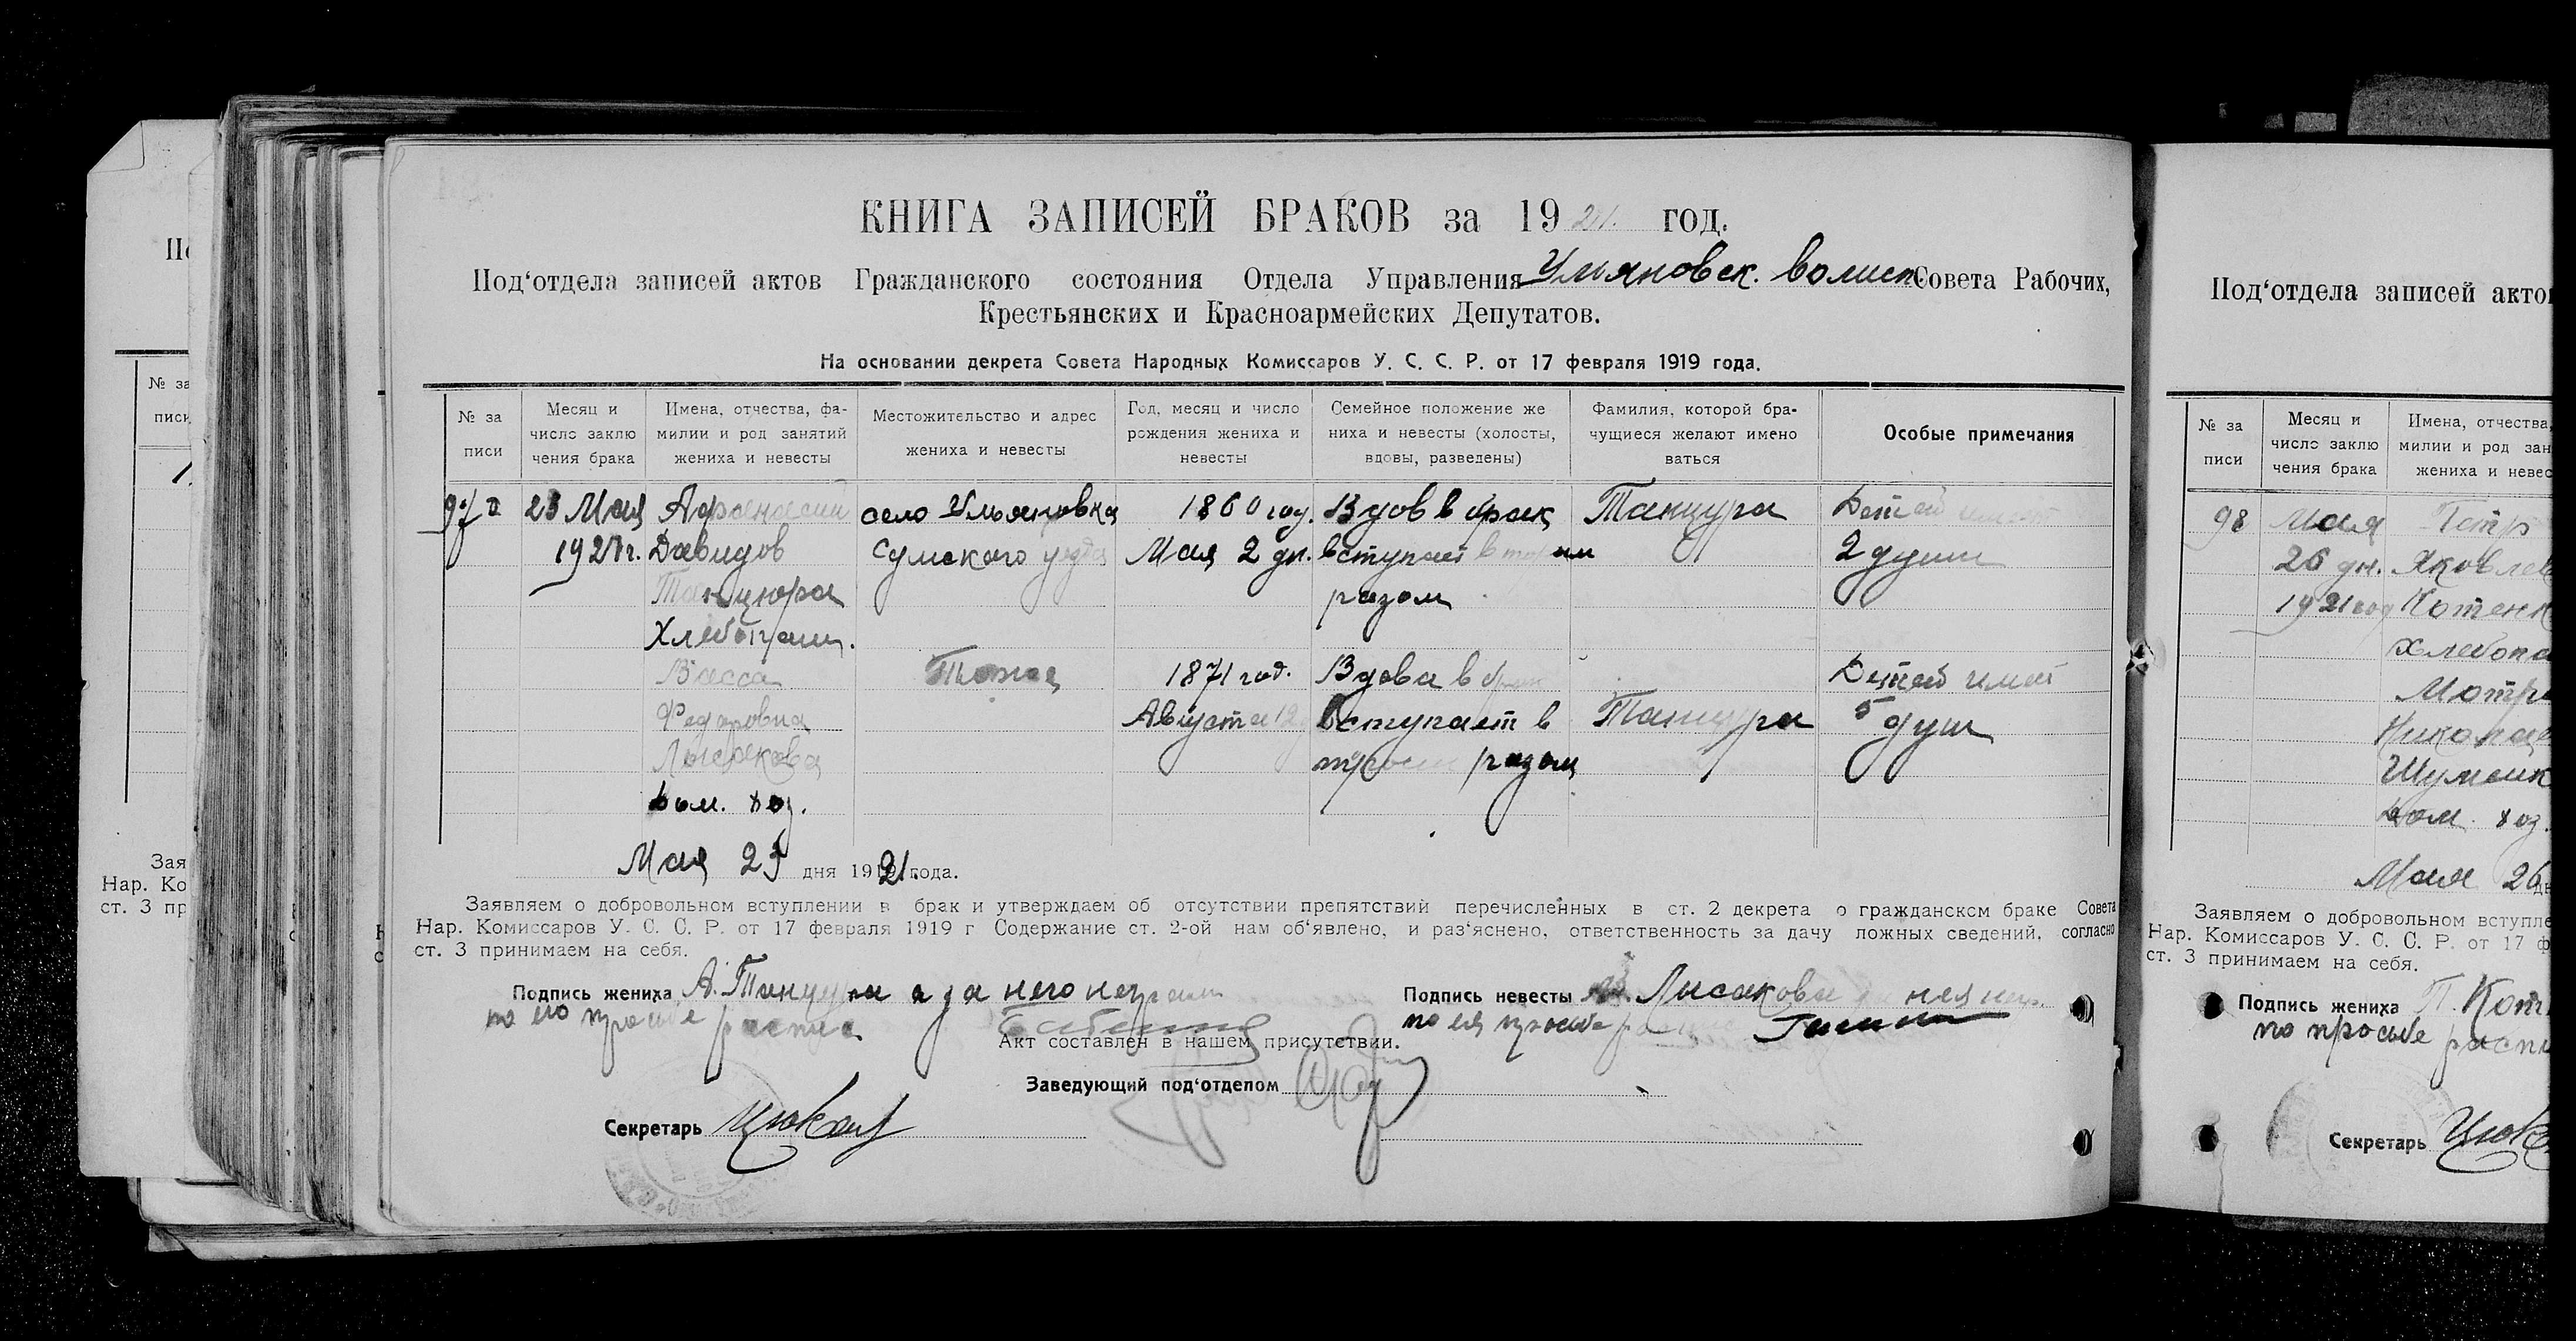 КНИГА ЗАПИСЕЙ БРАКОВ за 1921. год.
Под‘отдела записей актов Гражданского состояния Отдела Управления Ульяновск. волист Совета Рабочих,
Крестьянских и Красноармейских Депутатов.
На основании декрета Совета Народных Комиссаров У. С. С. Р. от 17 февраля 1919 года.
№ за
писи
Месяц и
число заклю
чения брака
Имена, отчества, фа-
милии и род занятий
жениха и невесты
Местожительство и адрес
жениха и невесты
Год, месяц и число
рождения жениха и
невесты
Семейное положение же
ниха и невесты (холосты,
вдовы, разведены)
Фамилия, которой бра-
чущиеся желают имено
ваться
Особые примечания
97
23 Мая
1921 г.
Афанасий
Давидов
Танцюра
Хлебопаш.
село Ульяновка
Сумского уезда
1860 год.
Мая 2 дн.
Вдов в брак
вступает вторым
разом
Танцура
Детей имеет
2 души
Васса
Федоровна
Лысакова
дом. хоз.
Тоже
1871 год.
Августа 12
Вдова в брак
вступает в
разом
Танцура
Детей имеет
5 душ
Мая 23 дня 1921 года.
Заявляем о добровольном вступлении в брак и утверждаем об отсутствии препятствий перечисленных в ст. 2 декрета о гражданском браке Совета
Нар. Комиссаров У. С. С. Р. от 17 февраля 1919 г Содержание ст. 2-ой нам об‘явлено, и раз‘яснено, ответственность за дачу ложных сведений, согласно
ст. 3 принимаем на себя.
Подпись жениха А. Танцура а за него неграм
по его просьбе распис
Подпись невесты В. Лисакова нея
по ея просьбе
Акт составлен в нашем присутствии.
Заведующий под‘отделом
Секретарь
Под‘отдела записей акто
№ за
писи
Месяц и
число заклю
чения брака
Имена, отчества,
милии и род зан
жениха и невес
98
Мая
26 дн.
1921 год
Петр
Яковлев
Котенк
Хлебопа
Мотр
Николае
Шуменк
дом. хоз.
Мая 26 дн
Заявляем о добровольном вступле
Нар. Комиссаров У. С. С. Р. от 17 ф
ст. 3 принимаем на себя.
Подпись жениха П. Кот
по просьбе распи
Секретарь
№ за
писи
Зая
Нар. Ко
ст. 3 пр